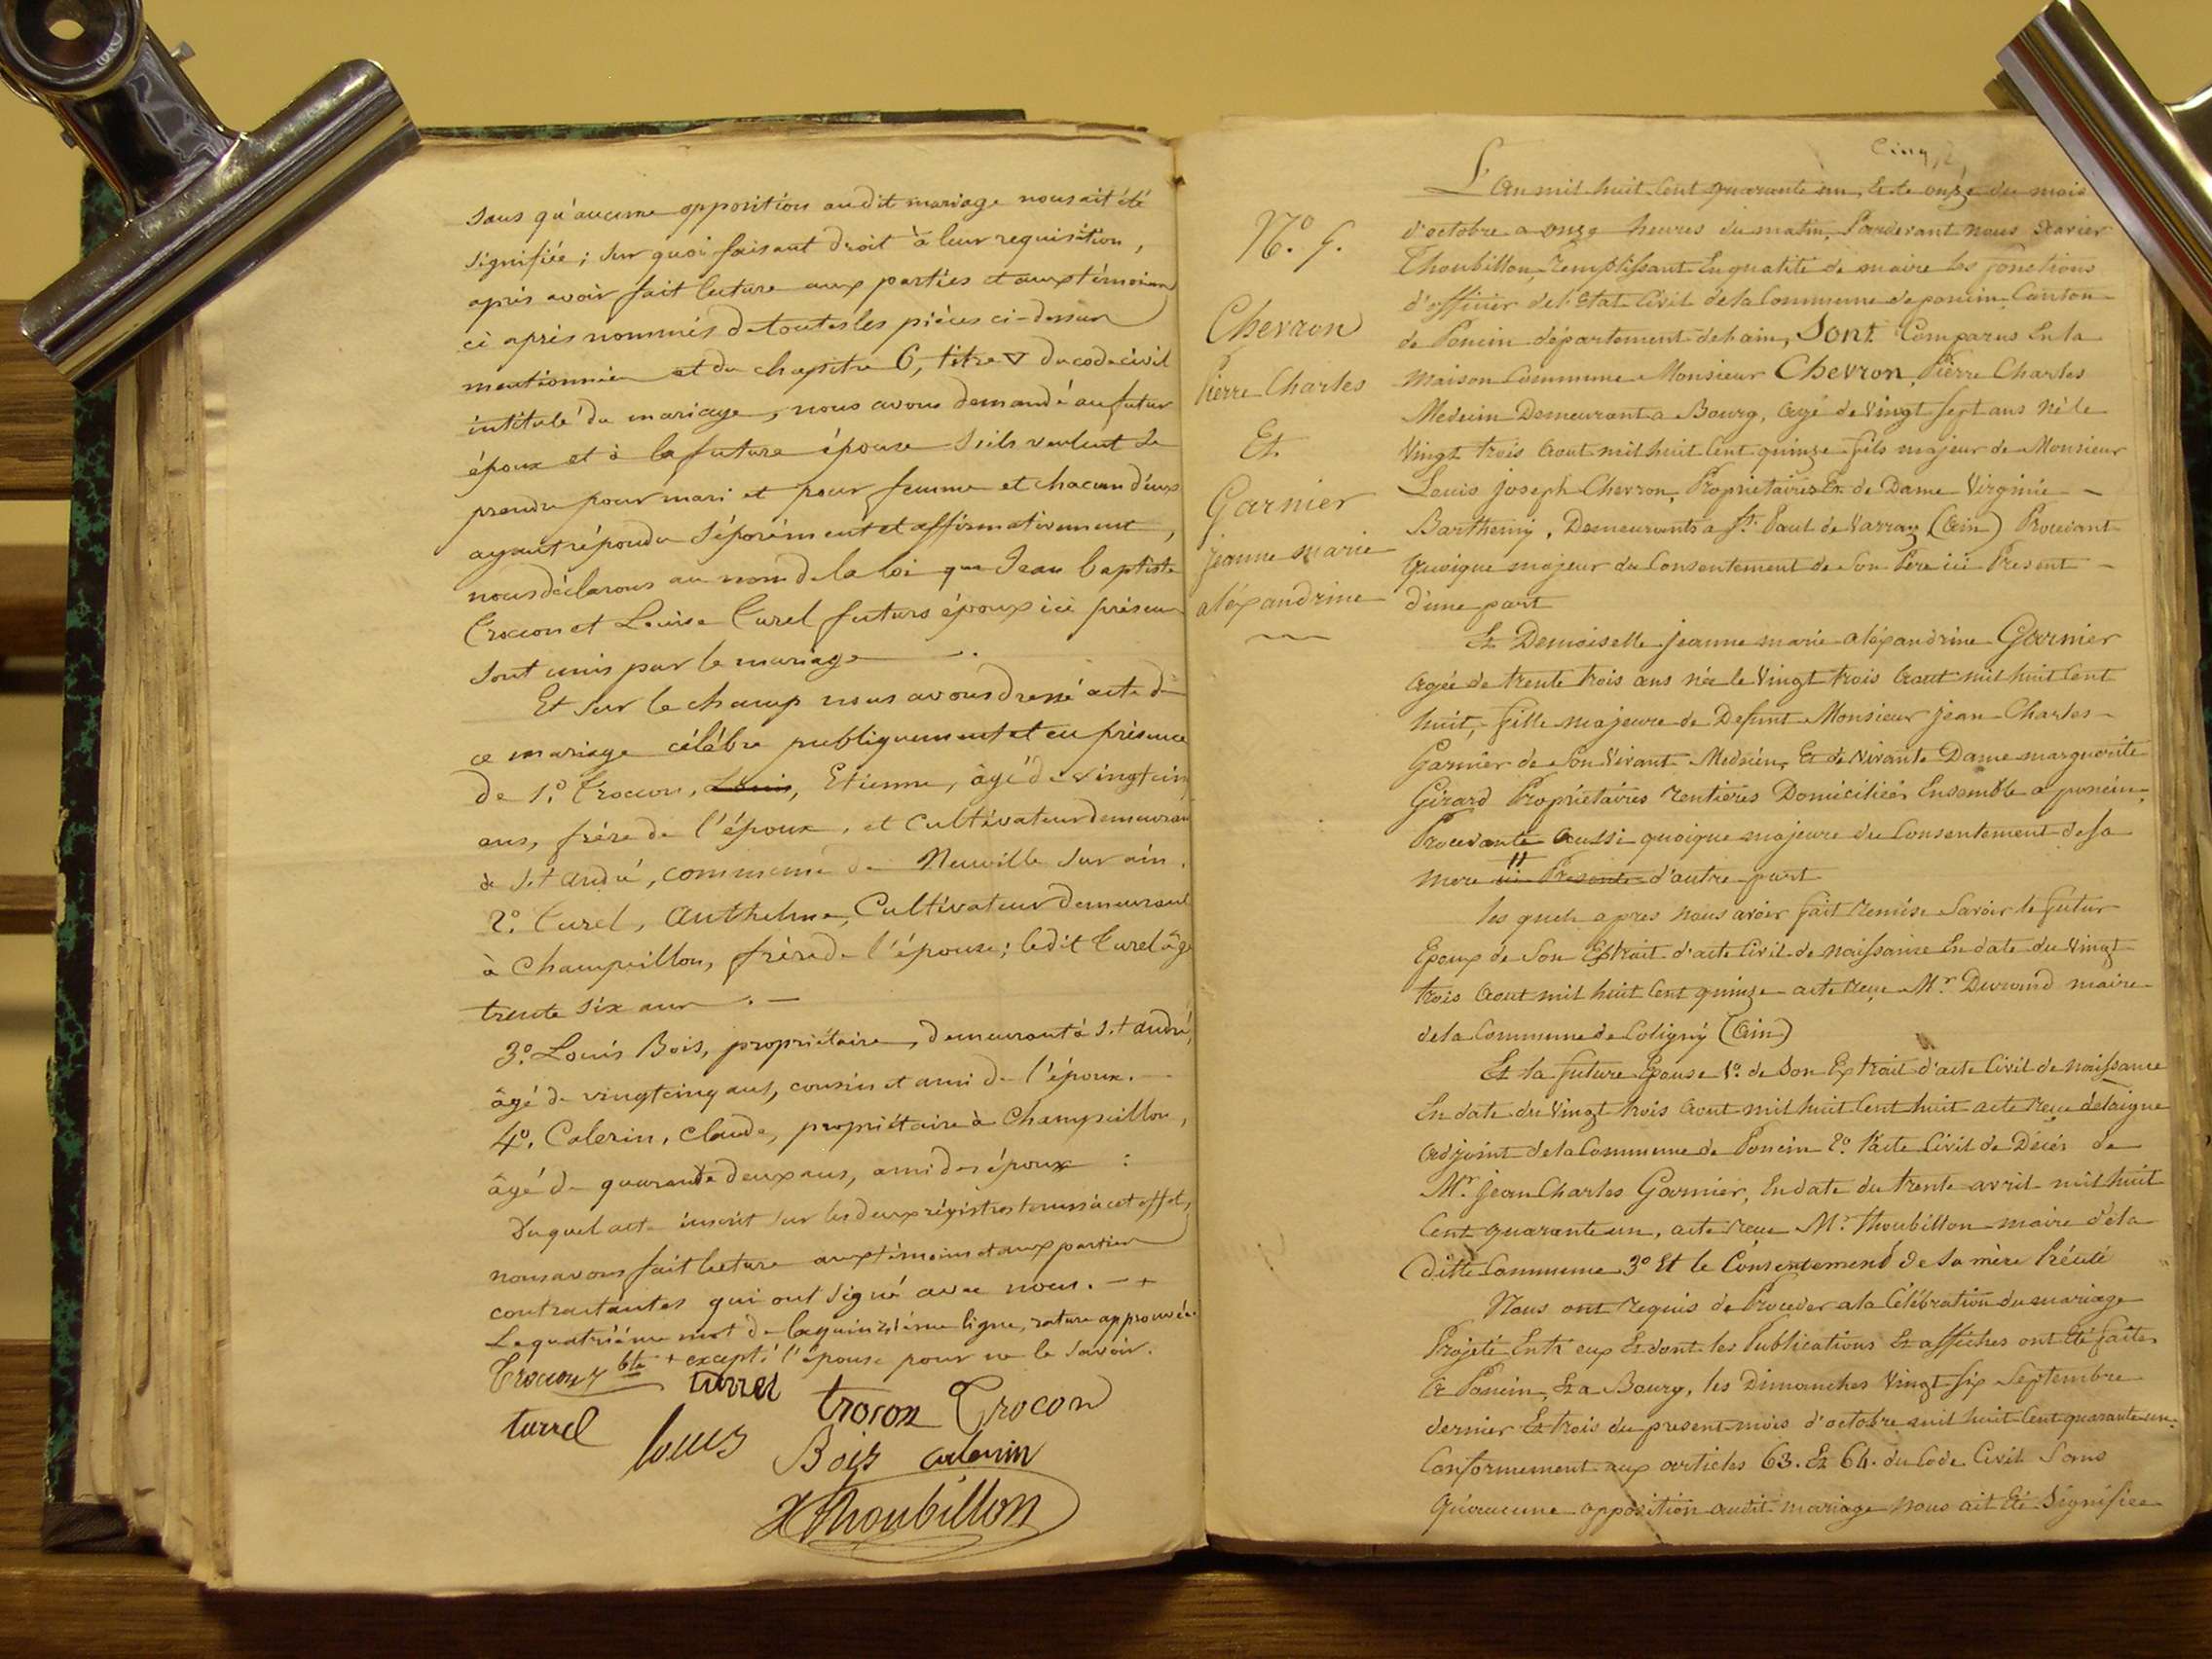 sans qu'aucune opposition audit mariage nous ait été
signifiée ; sur quoi faisant droit à leur requisition,
après avoir fait lecture aux parties et aux témoins
ci après nommés de toutes les pièces ci-dessus
mentionnées et du chapitre 6, titre V du code civil
intitulé du mariage, nous avons demandé au futur
époux et à la future épouse s'ils veulent se
prendre pour mari et pour femme et chacun d'eux
ayant répondu séparément et affirmativement,
nous déclarons au nom de la loi que Jean baptiste
Trocon et Louise Turel futurs époux ici présens
sont unis par le mariage.
Et sur le champ nous avons dressé acte de
ce mariage célébré publiquement et en présence
de 1.° Trocon, Louis, Etienne, âgé de vingt cinq
ans, frère de l'époux, et Cultivateur demeurant
à St André, commune de Neuville sur ain.
2.° Turel, Anthelme, Cultivateur demeurant
à Champeillon, frère de l'épouse ; ledit Turel âgé
trente six ans.
3.° Louis Bois, propriétaire, demeurant à St andré,
âgé de vingt cinq ans, cousin et ami de l'époux.
4.° Calerin, Claude, propriétaire à Champeillon,
âgé de quarante deux ans, ami des époux :
Duquel acte inscrit sur les deux régistres tenus à cet effet,
nous avons fait lecture aux témoins et aux parties
contractantes qui ont signé avec nous. - +
Le quatrième mot de la quinzième ligne, rature approuvée.
+ excepté l'épouse pour ne le savoir.
Trocon J bte turrel trocon Trocon
turrel louis Bois calerin
X Thoubillon
Cinq
N.° 5.
Chevron
Pierre Charles
Et
Garnier
jeanne marie
aléxandrine
L'an mil huit Cent quarante un, Et le onze du mois
d'octobre a onze heures du matin, Pardevant nous Xavier
Thoubillon, remplissant En qualité de maire les fonctions
d'officier de l'Etat Civil de la Commune de poncin Canton
de Poncin département de hain, Sont Comparus En la
maison Commune Monsieur Chevron, Pierre Charles
Medecin Demeurant a Bourg, agé de vingt sept ans Né le
Vingt trois aout mil huit Cent quinze fils majeur de Monsieur
Louis joseph Chevron, Propriétaires Et de Dame Virginie
Barthemy, Demeurants a St Paul de Varrax (Ain) Procédant
quoique majeur du Consentement de Son Père ici Present
d'une part
Et Demoiselle jeanne marie aléxandrine Garnier
agée de trente trois ans née le Vingt trois aout mil huit Cent
huit, fille majeure de Defunt Monsieur jean Charles
Garnier de Son Vivant Medecin, Et de Vivante Dame marguerite
Girard Propriétaires rentières Domiciliées Ensemble a poncin,
Procédante aussi quoique majeure du Consentement de sa
mere ici Presente d'autre part
les quels apres nous avoir fait remise Savoir le futur
Epoux de Son Extrait d'acte Civil de naissance En date du Vingt
trois aout mil huit Cent quinze acte reçu Mr Durand maire
de la Commune de Coligny (Ain)
Et la future Epouse 1.° de Son Extrait d'acte Civil de naissance
En date du Vingt trois aout mil huit Cent huit acte reçu delaigue
adjoint de la Commune de Poncin 2.° l'acte Civil de Décés de
Mr jean Charles Garnier, En date du trente avril mil huit
Cent quarante un, acte reçu Mr Thoubillon maire de la
ditte Commune 3.° Et le Consentement de Sa mère
Nous ont requis de Proceder a la Célébration du mariage
Projeté Entr'eux Et dont les Publications Et affiches ont été faites
a Poncin, Et a Bourg, les Dimanches Vingt Six Septembre
dernier Et trois du present mois d'octobre mil huit Cent quarante un.
Conformement aux articles 63. Et 64. du Code Civil Sans
qu'aucune opposition audit mariage nous ait été Signifiée